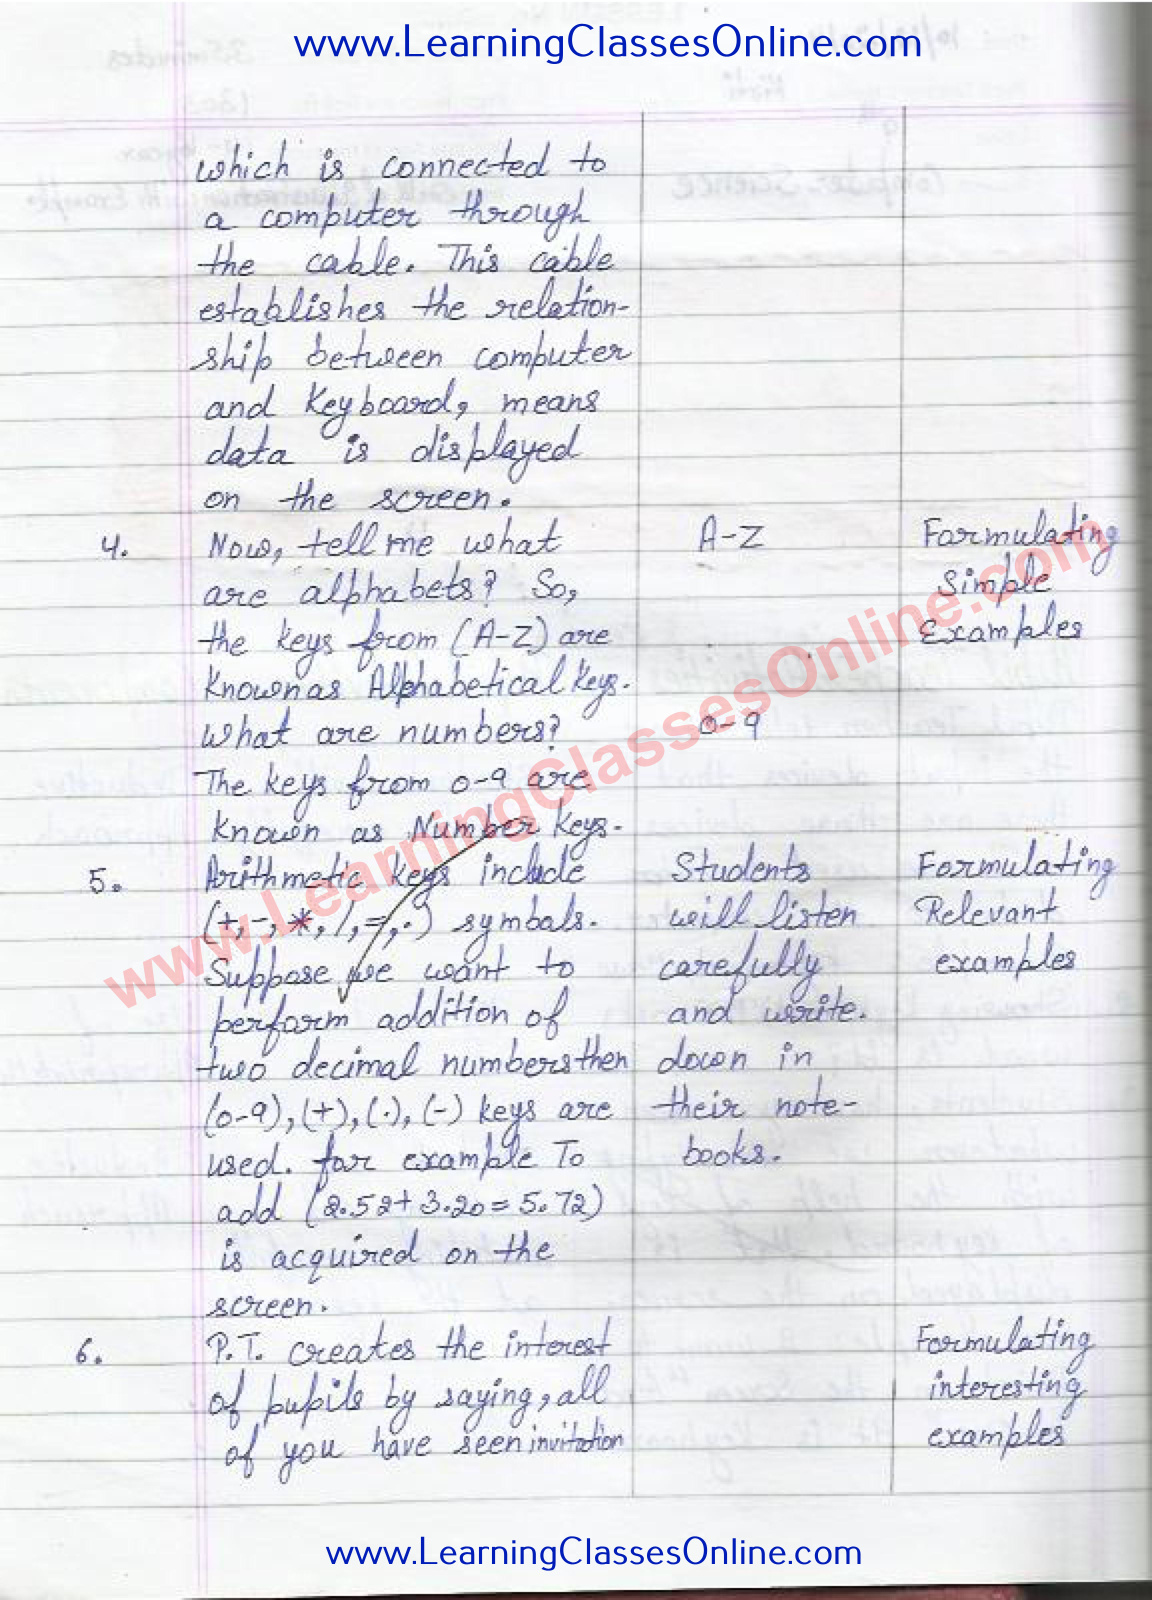 www.LearningClassesOnline.com
which is connected to
a computer through
the cable. This cable
establishes the relation-
ship between computer
and Keyboard, means
data is displayed
on the screen.
4. Now, tell me what
are alphabets? So,
the keys from (A-Z) are
Known as Alphabetical Keys.
What are numbers?
The Keys from 0-9 are
Known as Number Keys.
A-Z
0-9
Formulating
Simple
Examples
5. Arithmetic Keys include
(+, -, *, /, =, .) symbols.
Suppose we want to
perform addition of
two decimal numbers then
(0-9), (+), (.), (-) keys are
used. for example To
add (2.52+3.20=5.72)
is acquired on the
screen.
Students
will listen
carefully
and write.
down in
their note-
books.
Formulating
Relevant
examples
6. P.T. creates the interest
of pupils by saying, all
of you have seen invitation
Formulating
interesting
examples
www.LearningClassesOnline.com
www.LearningClassesOnline.com